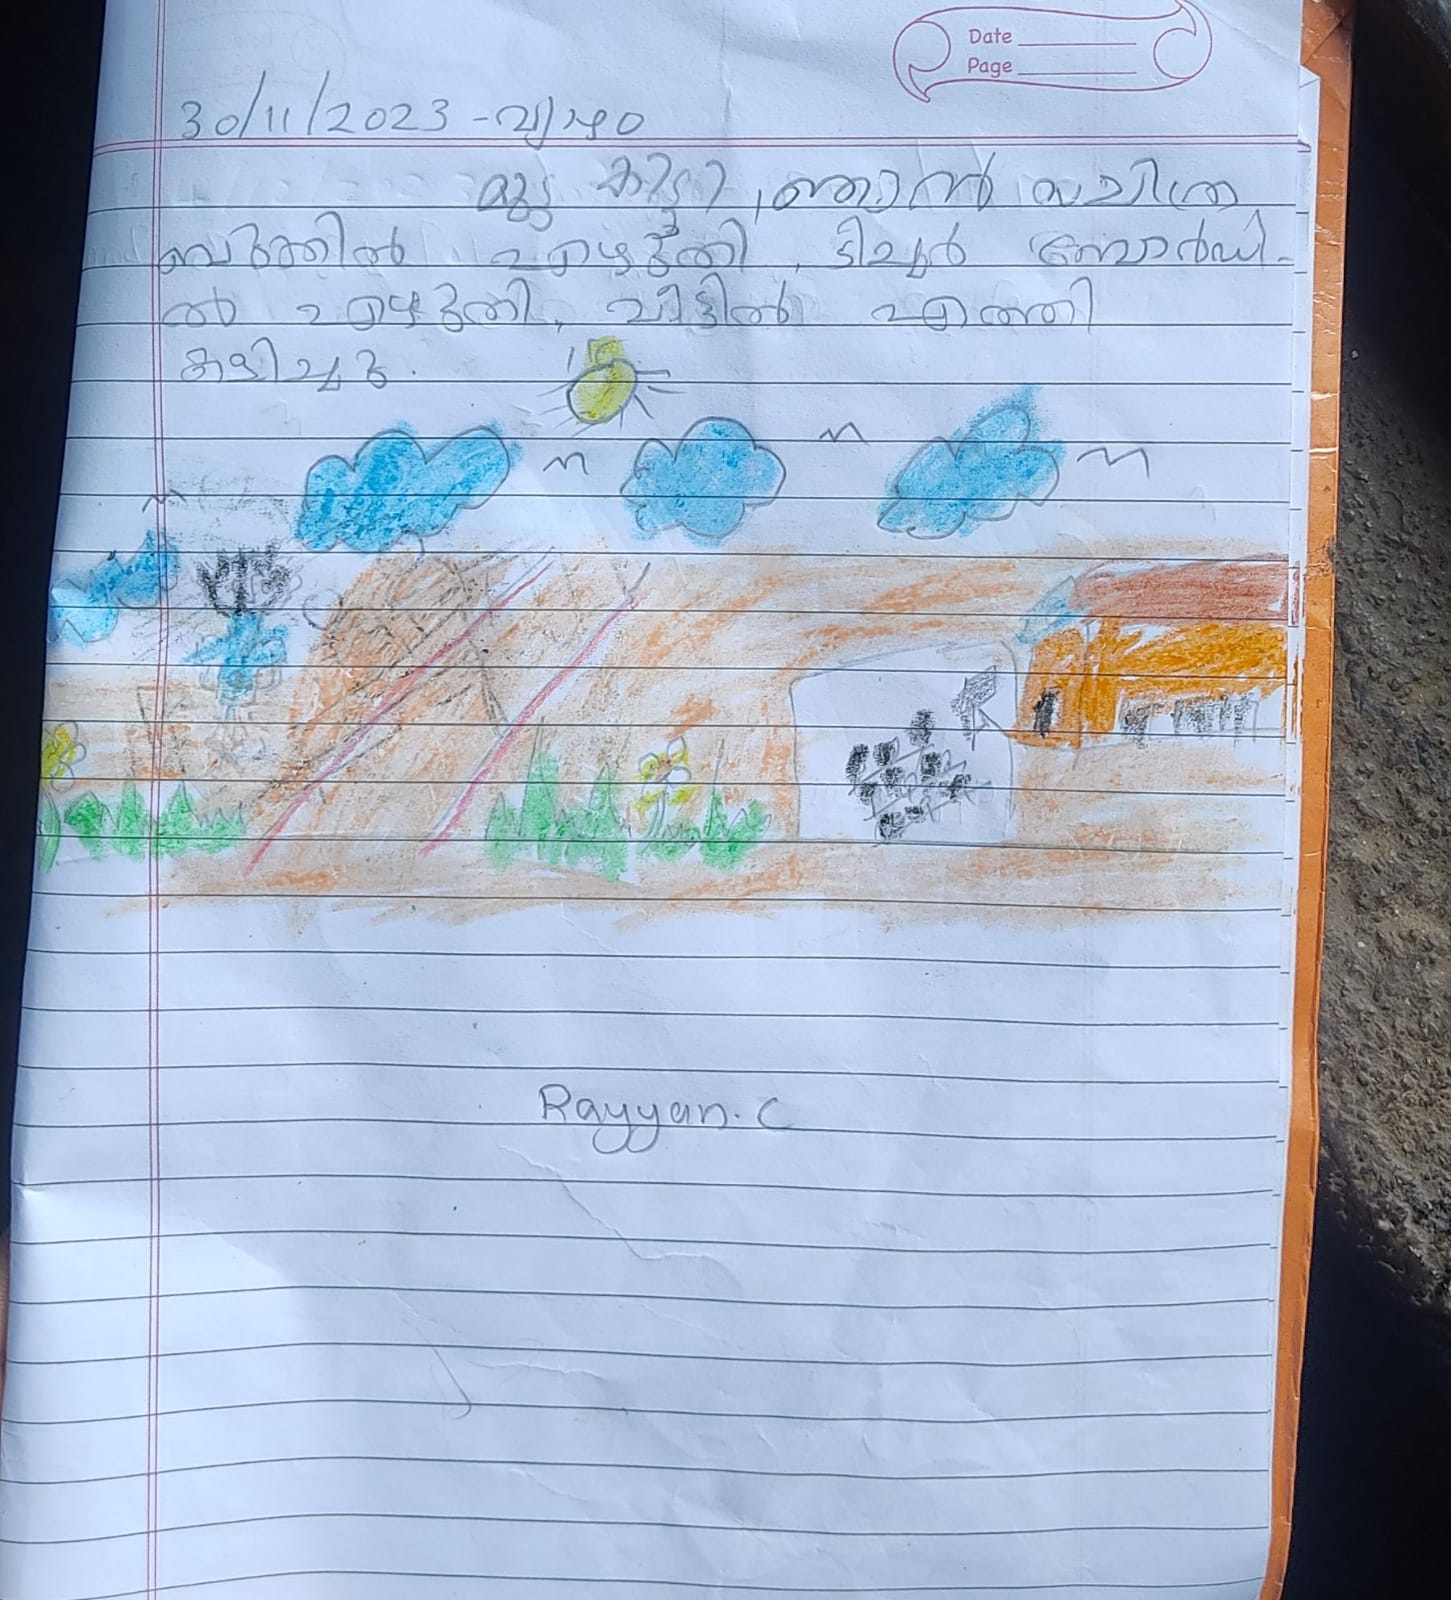 Date
Page
30/11/2023 - വ്യാഴം
കിട്ടി, ഞാൻ സചിത്ര
ബുത്തിൽ എഴുതി. ടിച്ചർ ബോർഡി-
ൽ എഴുതി. വീട്ടിൽ എത്തി
കളിച്ചു.
Rayyan. C